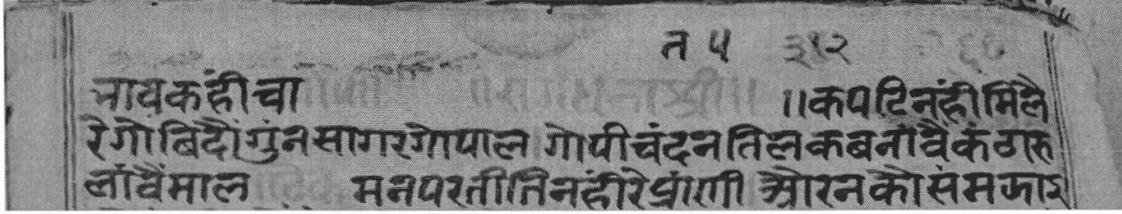 त ५ ३१२
नायकहीचा ॥कपटिनंहीमिलै
रेगोबिदौगुंनसागरगोपाल गोपीचंदनतिलकबनावैकंठारु
लांवैंमाल मनपरतीतिनंहीरेप्रांणी औरनकौसंमझाइ